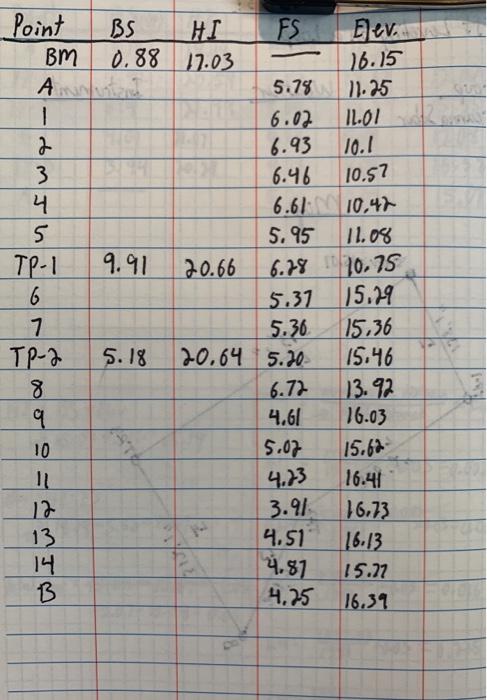 Point BS HI FS Elev.
BM 0.88 17.03 — 16.15
A 5.78 11.25
1 6.02 11.01
2 6.93 10.1
3 6.46 10.57
4 6.61 10.42
5 5.95 11.08
TP-1 9.91 20.66 6.28 10.75
6 5.37 15.29
7 5.30 15.36
TP-2 5.18 20.64 5.20 15.46
8 6.72 13.92
9 4.61 16.03
10 5.02 15.62
11 4.23 16.41
12 3.91 16.73
13 4.51 16.13
14 4.87 15.77
B 4.25 16.39